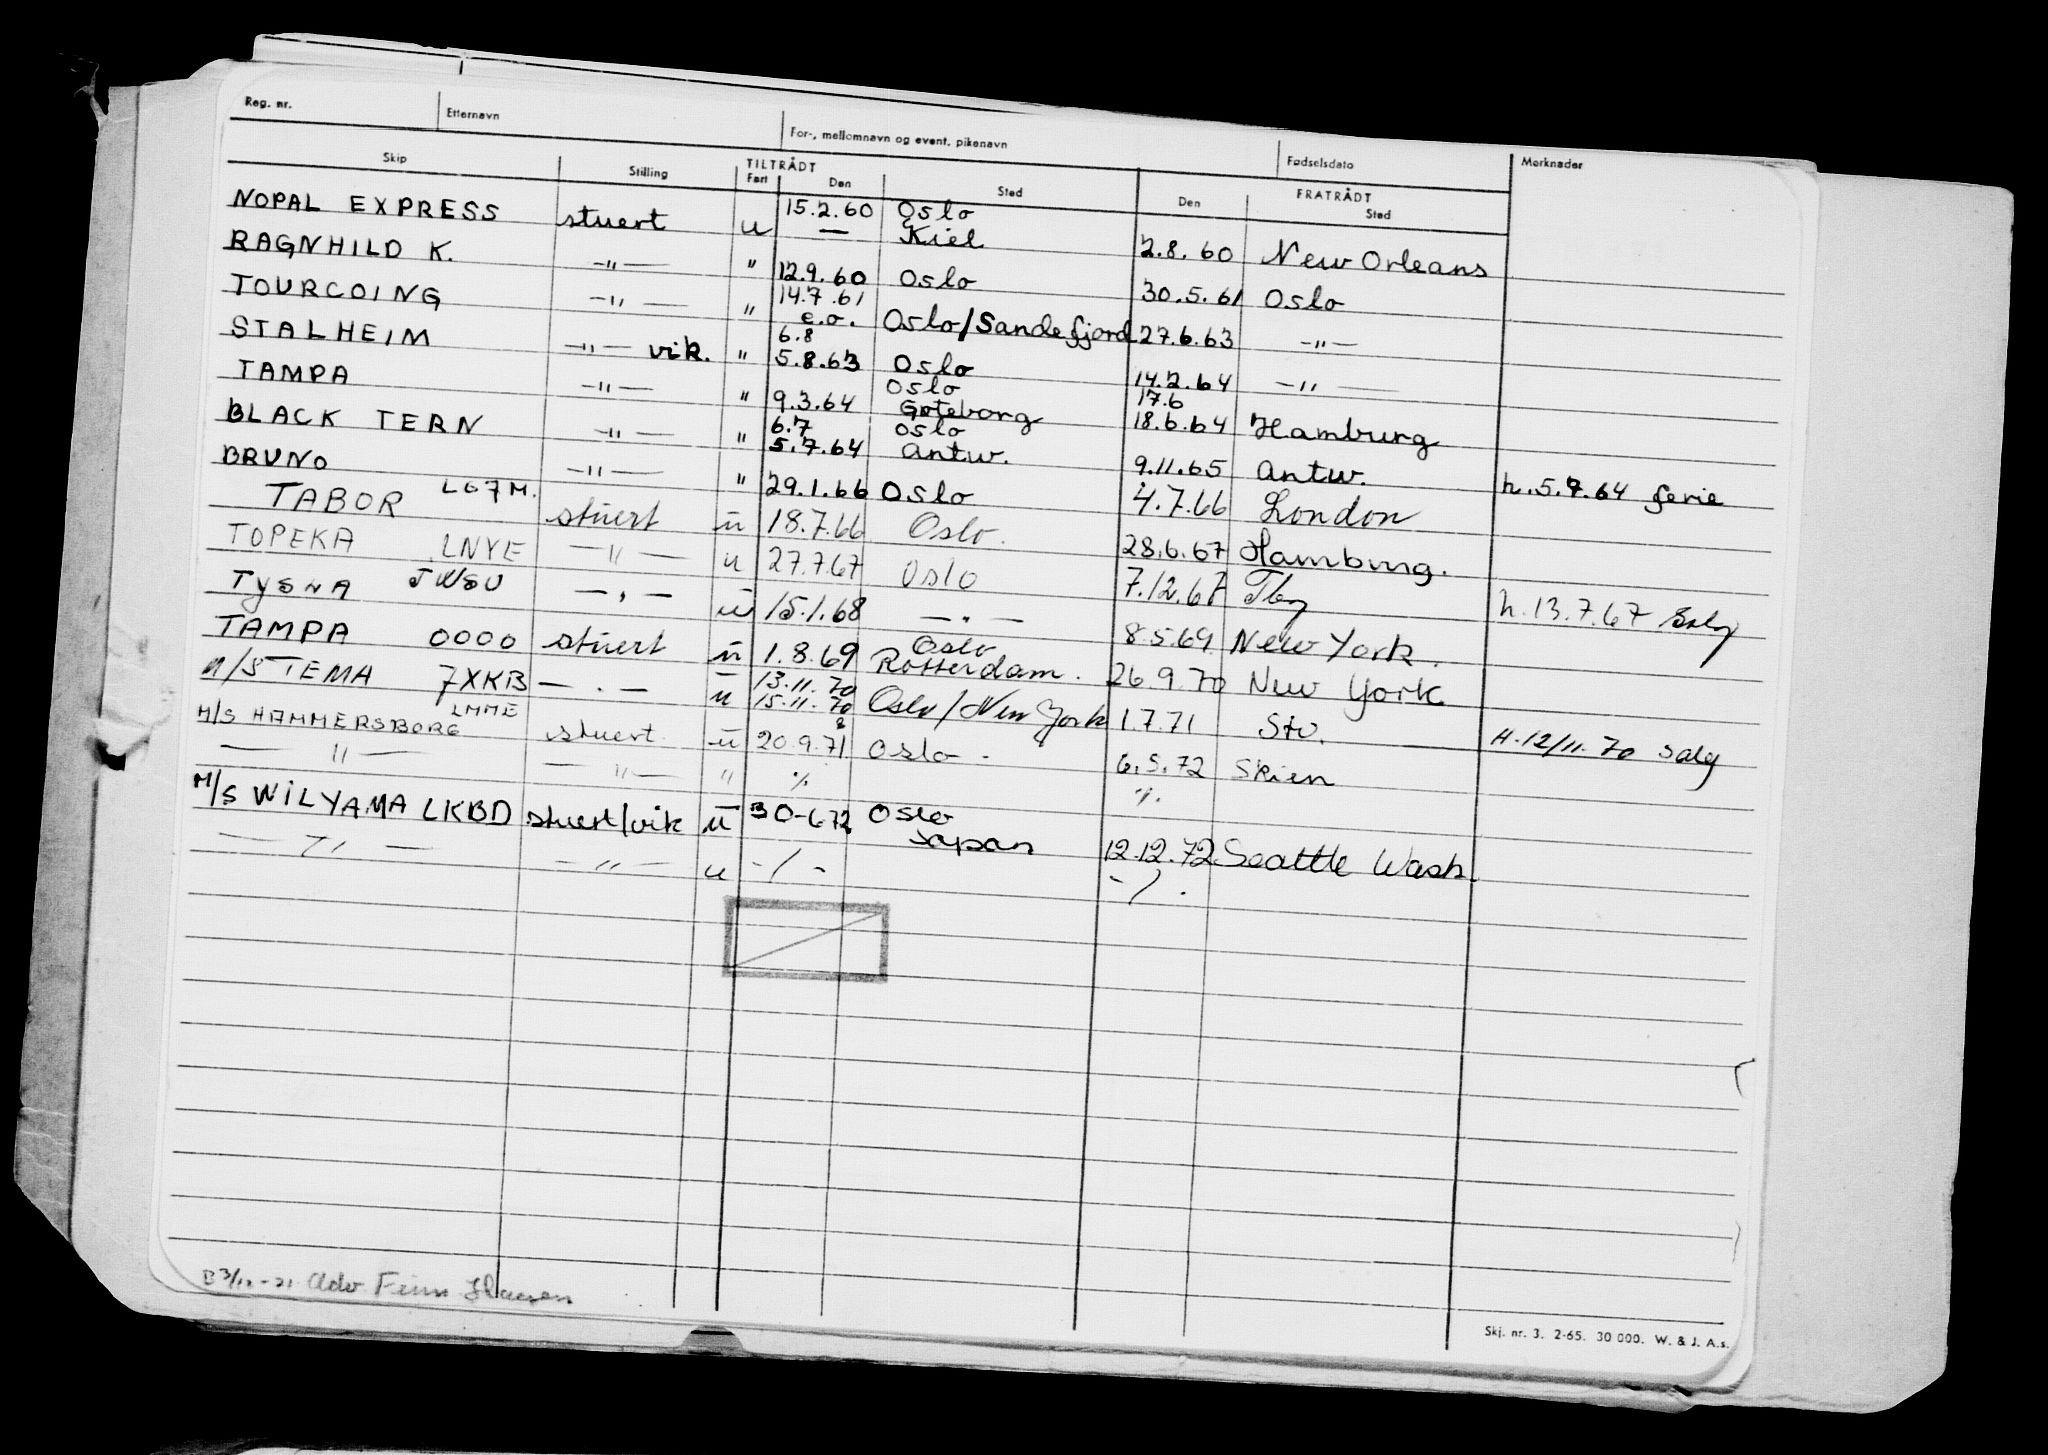 Reg. nr. Etternavn For-, mellomnavn og event. pikenavn Fødselsdato Merknader
Skip Stilling TILTRÅDT FRATRÅDT
Fart Den Sted Den Sted
NOPAL EXPRESS stuert u 15.2.60 — Oslo Kiel 2.8.60 New Orleans
RAGNHILD K. —"— " 12.9.60 Oslo 30.5.61 Oslo
TOURCOING —"— " 14.7.61 e.o. Oslo/Sandefjord 27.6.63 —"—
STALHEIM —"— vik. " 6.8 5.8.63 Oslo 14.2.64 —"—
TAMPA —"— " 9.3.64 Oslo Gøteborg 17.6 18.6.64 Hamburg
BLACK TERN —"— " 6.7 5.7.64 Oslo Antw. 9.11.65 Antw. h.5.9.64 ferie
BRUNO —"— " 29.1.66 Oslo 4.7.66 London
TABOR LG7M. stuert u 18.7.66 Oslo. 28.6.67 Hamburg.
TOPEKA LNYE —"— u 27.7.67 Oslo 7.12.67 Tbg h.13.7.67 Salg
TYSNA JWSU —"— u 15.1.68 —"— 8.5.69 New York.
TAMPA OOOO stuert u 1.8.69 Oslo Rotterdam. 26.9.70 New York
M/S TEMA 7XKB —"— u 13.11.70 15.11.70 Oslo/New York 1.7.71 Stv. H.12/11.70 salg
M/S HAMMERSBORG LMME stuert u 20.9.71 8 Oslo. 6.5.72 Skien
—"— —"— " % %.
M/S WILYAMA LKBD stuert/vik u 30-6.72 Oslo Japan 12.12.72 Seattle Wash.
—"— —"— u -/- -/.
Adv. Finn Hansen
Skj. nr. 3. 2-65. 30 000. W. & J. A.s.